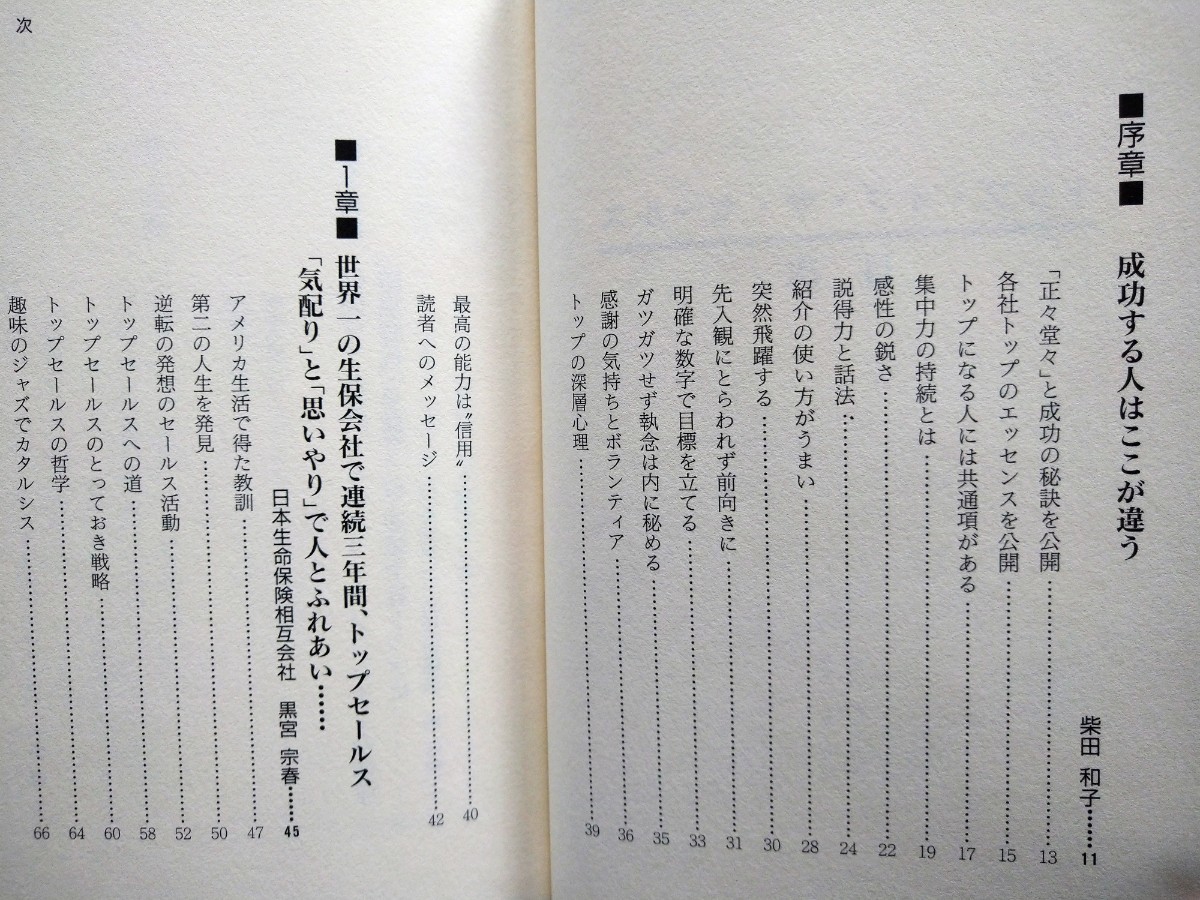 ■序章■ 成功する人はここが違う
柴田 和子………11
「正々堂々」と成功の秘訣を公開………13
各社トップのエッセンスを公開………15
トップになる人には共通項がある………17
集中力の持続とは………19
感性の鋭さ………22
説得力と話法………24
紹介の使い方がうまい………28
突然飛躍する………30
先入観にとらわれず前向きに………31
明確な数字で目標を立てる………33
ガツガツせず執念は内に秘める………35
感謝の気持ちとボランティア………36
トップの深層心理………39
最高の能力は〝信用〟………40
読者へのメッセージ………42
■1章■ 世界一の生保会社で連続三年間、トップセールス
「気配り」と「思いやり」で人とふれあい……
日本生命保険相互会社 黒宮 宗春……45
アメリカ生活で得た教訓………47
第二の人生を発見………50
逆転の発想のセールス活動………52
トップセールスへの道………58
トップセールスのとっておき戦略………60
トップセールスの哲学………64
趣味のジャズでカタルシス………66
次